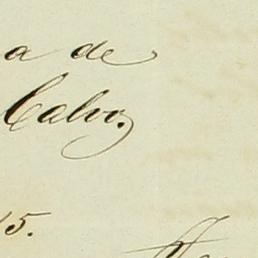 a de
Calvo,
15.